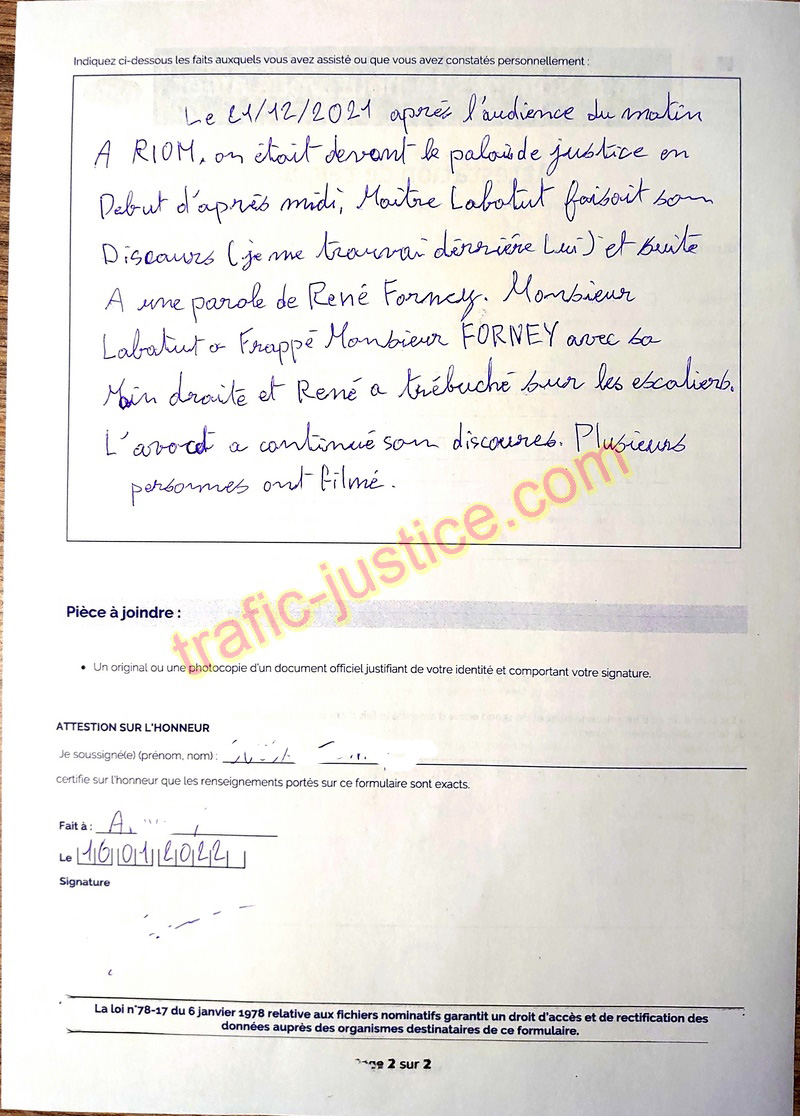 Indiquez ci-dessous les faits auxquels vous avez assisté ou que vous avez constatés personnellement :
Le 21/12/2021 après l'audience du matin
A RIOM, on était devant le palais de justice en
Debut d'après midi, Maitre Labatut faisait son
Discours (je me trouvai dérrière Lui) et suite
A une parole de René Forney. Monsieur
Labatut a Frappé Monsieur FORNEY avec sa
Main droite et René a trébuché sur les escaliers.
L'avocat a continué son discoures. Plusieurs
personnes ont filmé.
trafic-justice.com
Pièce à joindre :
• Un original ou une photocopie d'un document officiel justifiant de votre identité et comportant votre signature.
ATTESTION SUR L'HONNEUR
Je soussigné(e) (prénom, nom) :
certifie sur l'honneur que les renseignements portés sur ce formulaire sont exacts.
Fait à : A
Le 16 01 2022
Signature
La loi n°78-17 du 6 janvier 1978 relative aux fichiers nominatifs garantit un droit d'accès et de rectification des
données auprès des organismes destinataires de ce formulaire.
2 sur 2